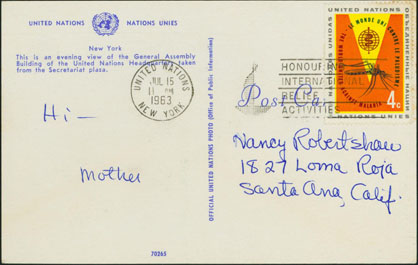 UNITED NATIONS NATIONS UNIES
New York
This is an evening view of the General Assembly
Building of the United Nations Headquarters taken
from the Secretariat plaza.
Hi -
Mother
70265
OFFICIAL UNITED NATIONS PHOTO (Office of Public Information)
UNITED NATIONS
JUL 15
11 PM
1963
NEW YORK
HONOUR
INTERNATIONAL
RELIEF
ACTIVITIES
Post Car
UNITED NATIONS
NACIONES UNIDAS
LE MONDE UNI CONTRE LE PALUDISME
THE WORLD UNITED AGAINST MALARIA
4c
NATIONS UNIES
Nancy Robertshaw
1827 Loma Roja
Santa Ana, Calif.